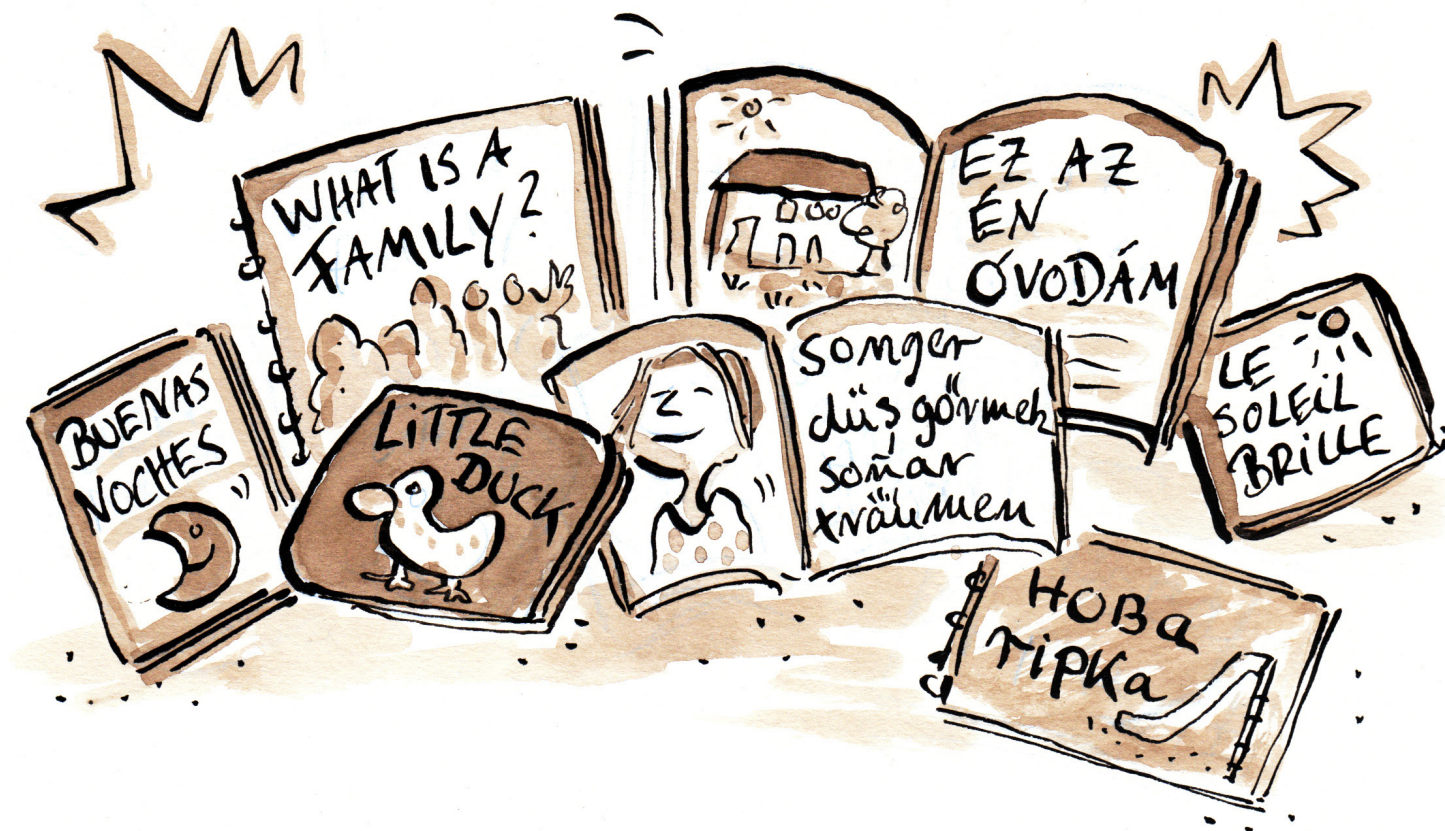 WHAT IS A
FAMILY?
EZ AZ
ÉN
ÓVODÁM
BUENAS
NOCHES
LiTTLE
DUCK
songer
düş görmek
soñar
träumen
LE
SOLEiL
BRiLLE
HOBa
ripKa